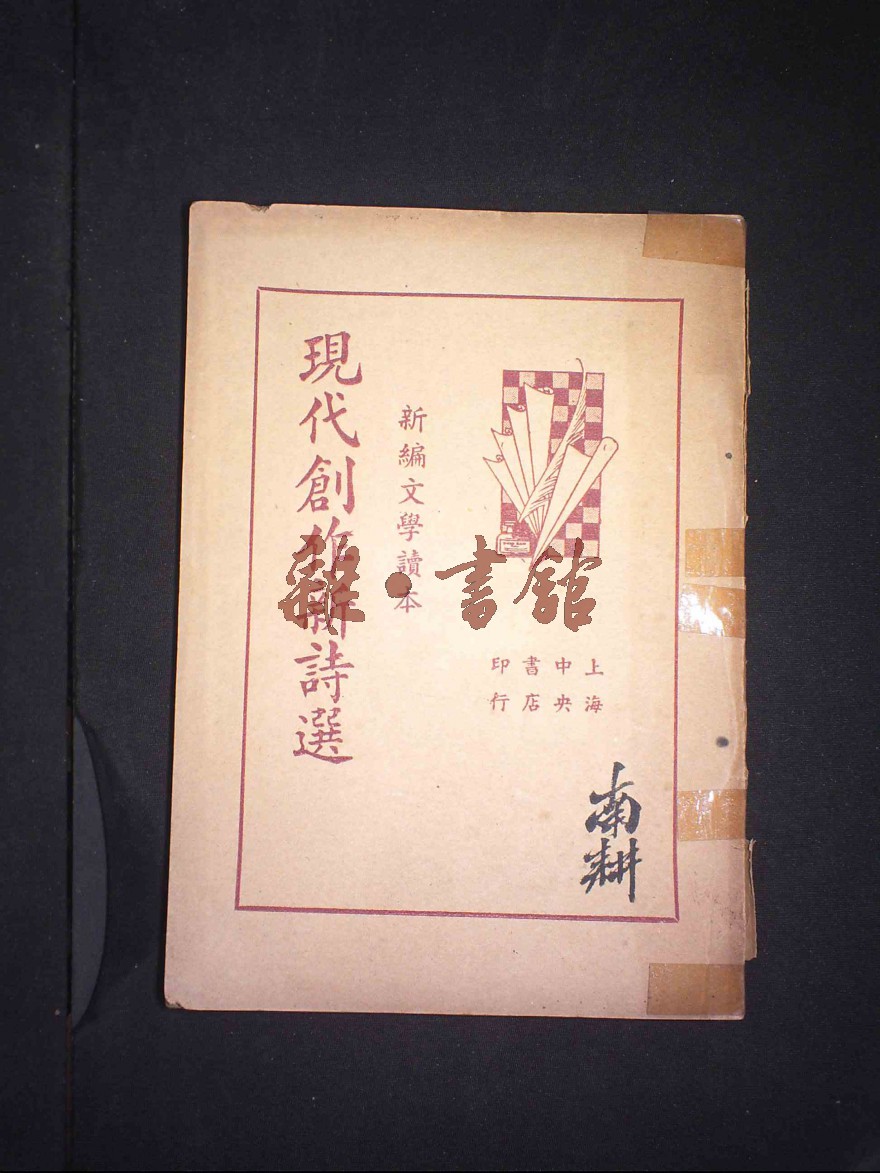 現代創作新詩選
新編文學讀本
上海
中央
書店
印行
南耕
雜·書館